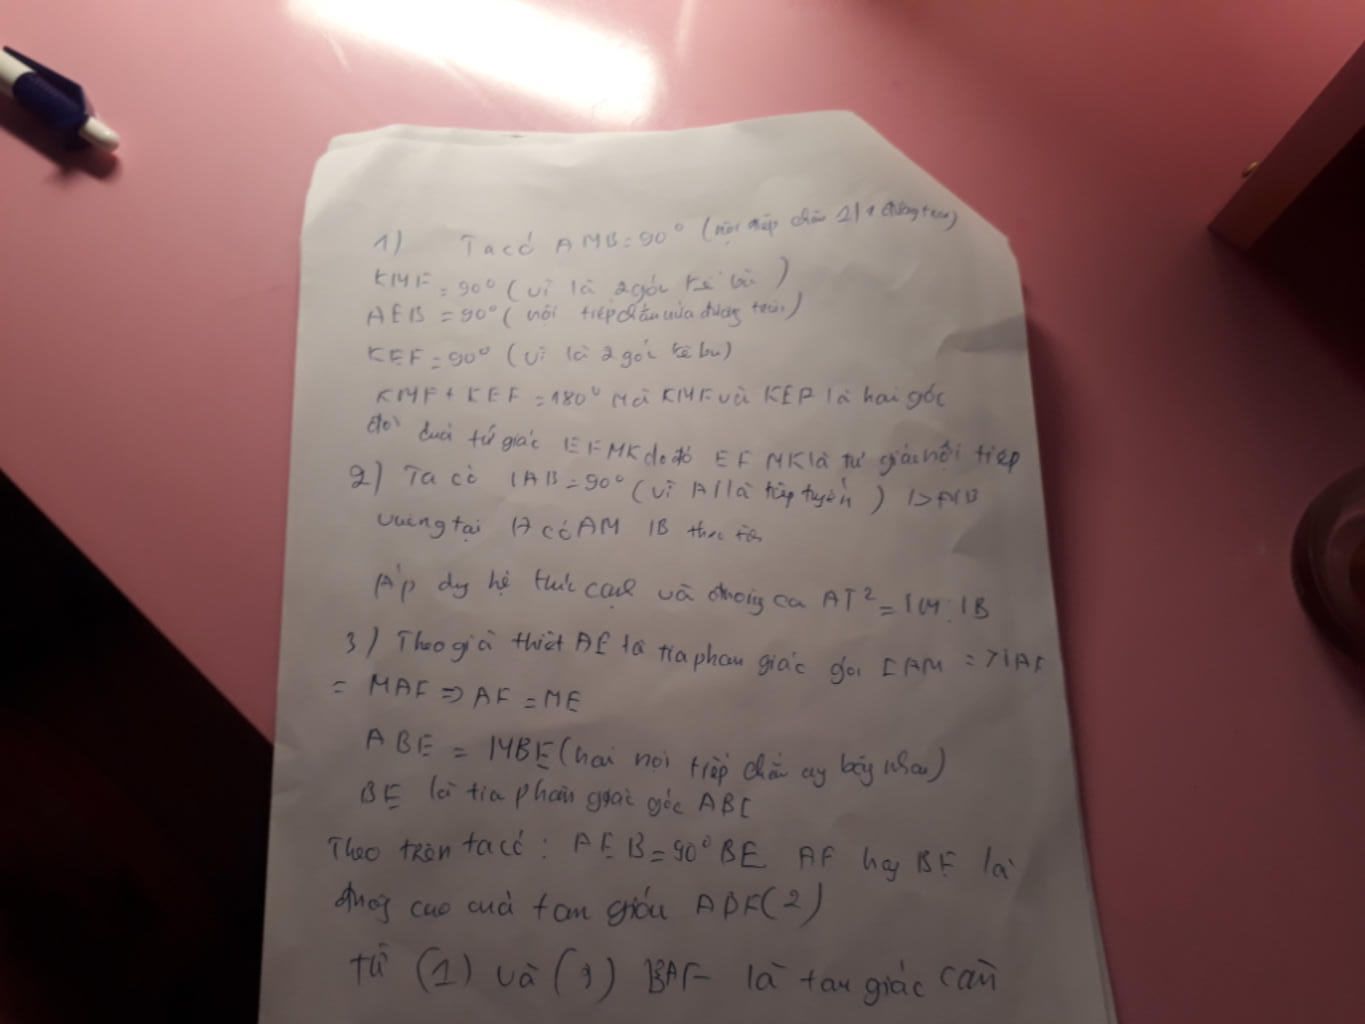 1) Ta có AMB = 90° (nội tiếp chắn 1/ đường tròn)
KMF = 90° (vì là 2 góc kề bù)
AEB = 90° (nội tiếp chắn nửa đường tròn)
KEF = 90° (vì là 2 góc kề bù)
KMF + KEF = 180° Mà KMF và KEF là hai góc
đối cuả tứ giác EFMK do đó EFMK là tứ giác nội tiếp
2) Ta có IAB = 90° (vì AI là tiếp tuyến) AIB
vuông tại A có AM IB theo trên
Áp dụng hệ thức cạnh và đường cao AI² = IM . IB
3) Theo giả thiết AE là tia phân giác góc IAM => IAE
= MAE => AE = ME
ABE = MBE (hai nội tiếp chắn cung bằng nhau)
BE là tia phân giác góc ABI
Theo trên ta có : AEB = 90° BE AF hay BE là
đường cao cuả tam giác ABF (2)
từ (1) và (2) BAF là tam giác cân